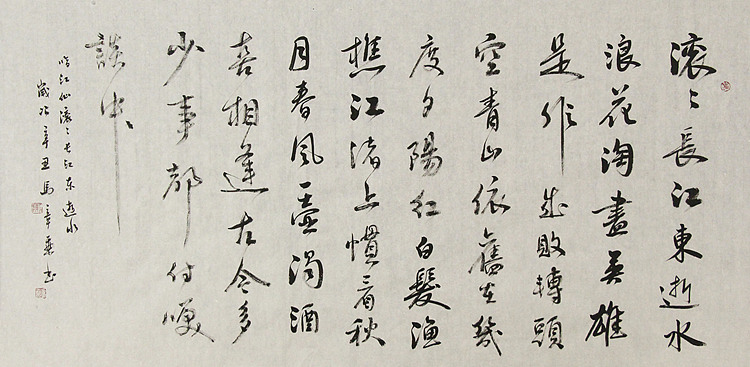 滚〻長江東逝水
浪花淘盡英雄
是非成敗轉頭
空青山依舊在幾
度夕陽红白髮渔
樵江渚上慣看秋
月春風一壺濁酒
喜相逢古今多
少事都付咲
談中
临江仙滚〻长江东逝水
歲次辛丑馬章乘书